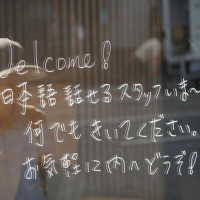 Welcome!
日本語話せるスタッフいま〜
何でもきいてください。
お気軽に内へどうぞ!